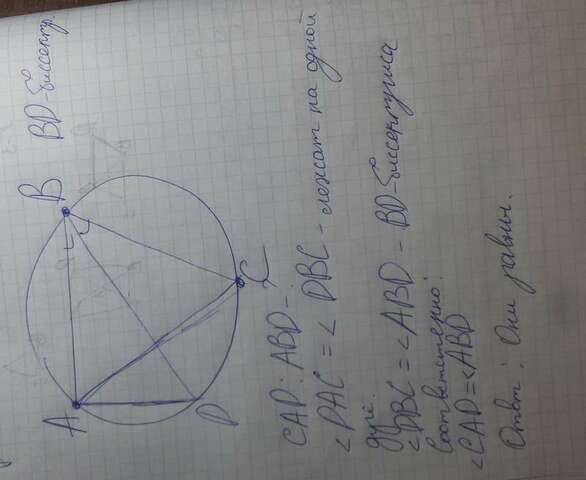 BD-биссектр.
A
B
C
D
CAD : ABD -
<DAC = < DBC - лежат на одной
дуге.
<DBC = <ABD - BD-биссектриса
Соответственно:
<CAD = <ABD
Ответ: Они равны.